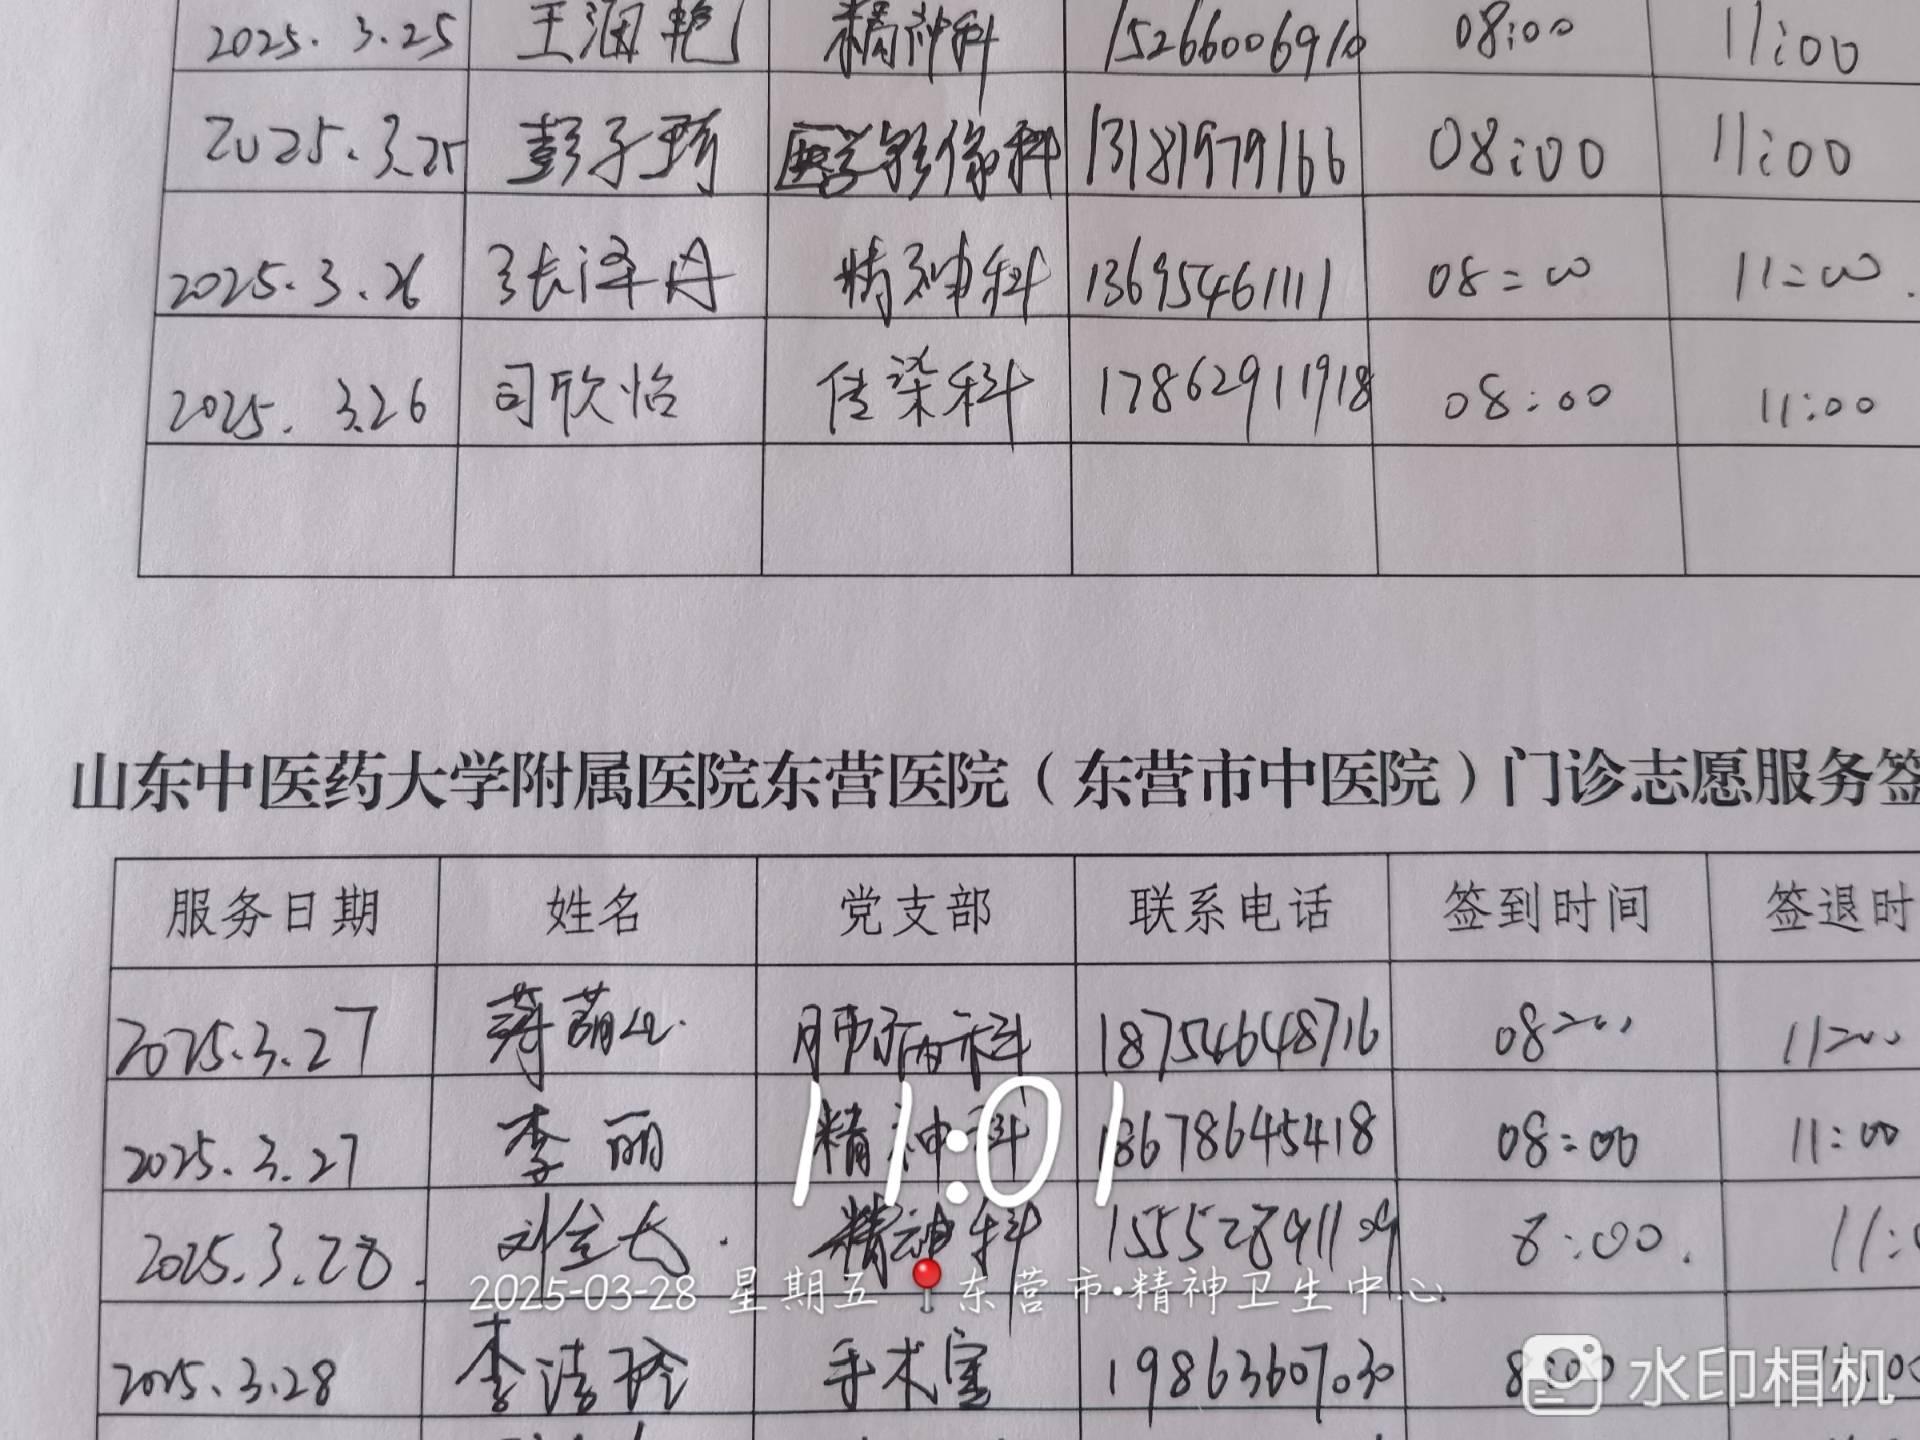 2025.3.25 王润艳 精神科 15266006910 08:00 11:00
2025.3.25 彭子琦 医学影像科 13181979166 08:00 11:00
2025.3.26 张泽丹 精神科 13695461111 08:00 11:00
2025.3.26 司欣怡 传染科 17862911918 08:00 11:00
山东中医药大学附属医院东营医院（东营市中医院）门诊志愿服务签
服务日期 姓名 党支部 联系电话 签到时间 签退时
2025.3.27 蒋萌 肺病科 18754648716 08:00 11:00
2025.3.27 李丽 精神科 18678645418 08:00 11:00
11:01
2025.3.28. 刘 精神科 15552891109 8:00. 11:
2025-03-28 星期五 东营市·精神卫生中心
2025.3.28 李洁玲 手术室 19863607030 8:00
水印相机